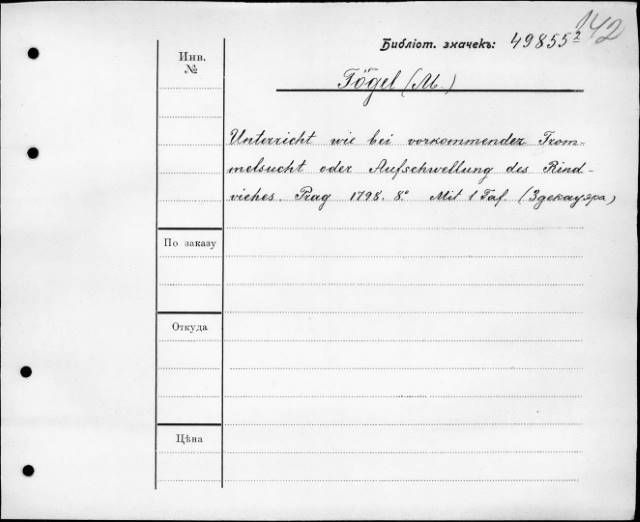 142
Библіот. значекъ: 49855²
Инв. №
Fögel (M.)
Unterricht wie bei vorkommender Trom-
melsucht oder Aufschwellung des Rind-
viehes. Prag 1798. 8.° Mit 1 Taf. (Здекауэра)
По заказу
Откуда
Цѣна